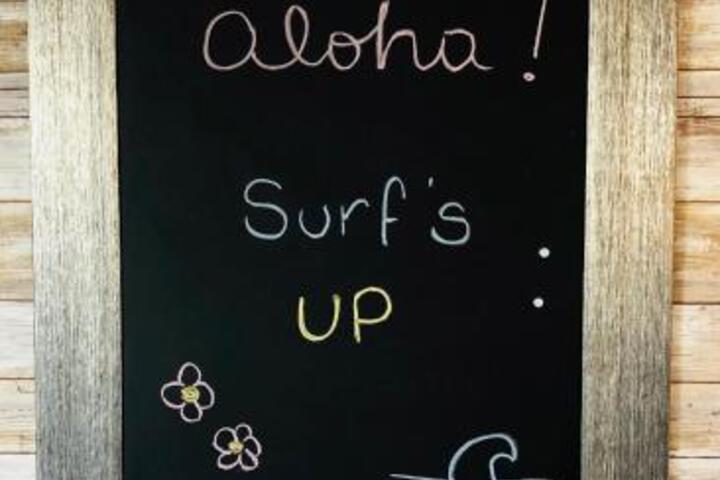 aloha!
Surf's
UP